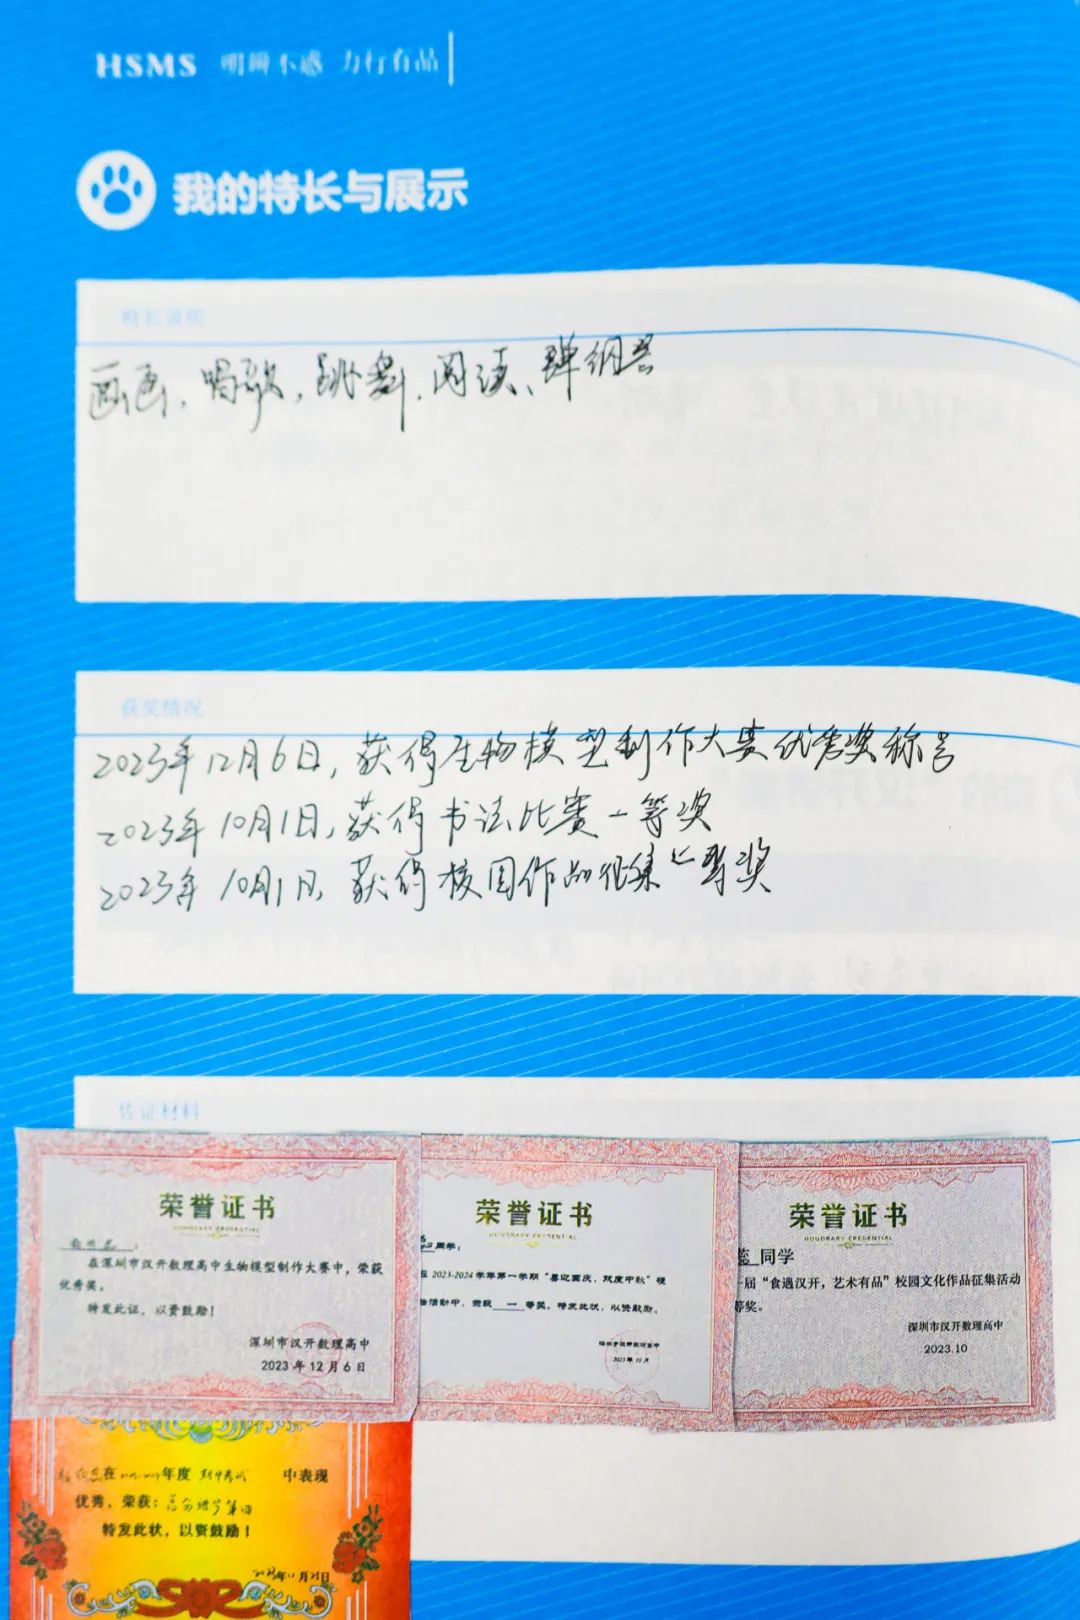 HSMS 明辩不惑 力行有品
我的特长与展示
特长说明
画画、唱歌,跳舞,阅读、弹钢琴
获奖情况
2023年12月6日,获得生物模型制作大赛优秀奖称号
2023年10月1日,获得书法比赛一等奖
2023年10月1日,获得校园作品征集二等奖
佐证材料
荣誉证书
HONORARY CREDENTIAL
在深圳市汉开数理高中生物模型制作大赛中,荣获
优秀奖。
特发此证,以资鼓励!
深圳市汉开数理高中
2023年12月6日
荣誉证书
HONORARY CREDENTIAL
同学:
在2023-2024学年第一学期“喜迎国庆,欢度中秋”硬
活动中,荣获 一 等奖。特发此状,以资鼓励。
深圳市汉开数理高中
2023年10月
荣誉证书
HONORARY CREDENTIAL
蕊 同学
届“食遇汉开,艺术有品”校园文化作品征集活动
等奖。
深圳市汉开数理高中
2023.10
在 年度 期中考试 中表现
优秀,荣获:总分进步第四
特发此状,以资鼓励!
2023年11月 日